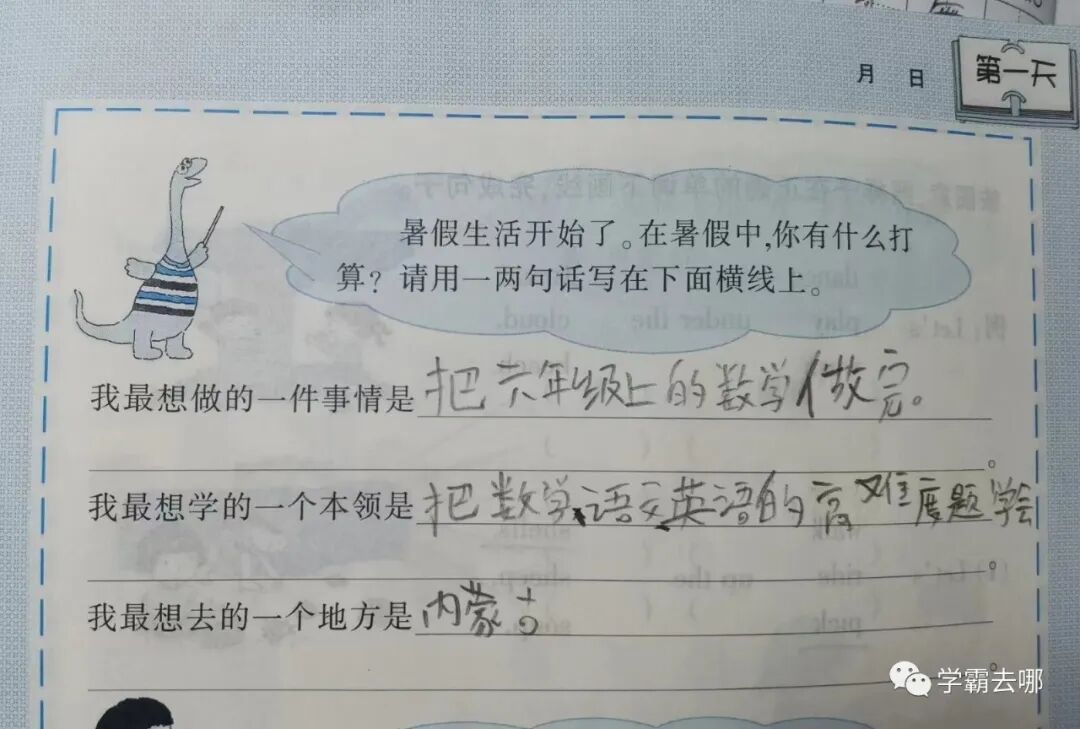 月 日
第一天
暑假生活开始了。在暑假中,你有什么打
算?请用一两句话写在下面横线上。
我最想做的一件事情是把六年级上的数学做完。
。
我最想学的一个本领是把数学、语文、英语的高难度题学会
。
我最想去的一个地方是内蒙古
。
学霸去哪